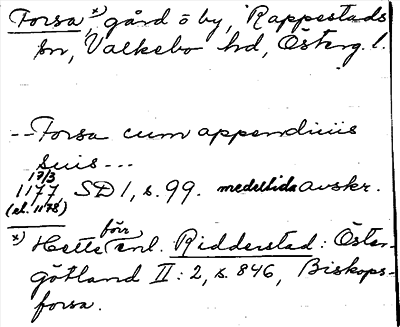 Forsa x), gård o by, Rappestads
sn, Valkebo hd, Österg. l.
--Forsa cum appendiciis
suis---
17/3
1177 SD 1, s. 99. medeltida avskr.
(el. 1178)
x) Hette förr enl. Ridderstad: Öster-
götland II: 2, s. 846, Biskops-
forsa.